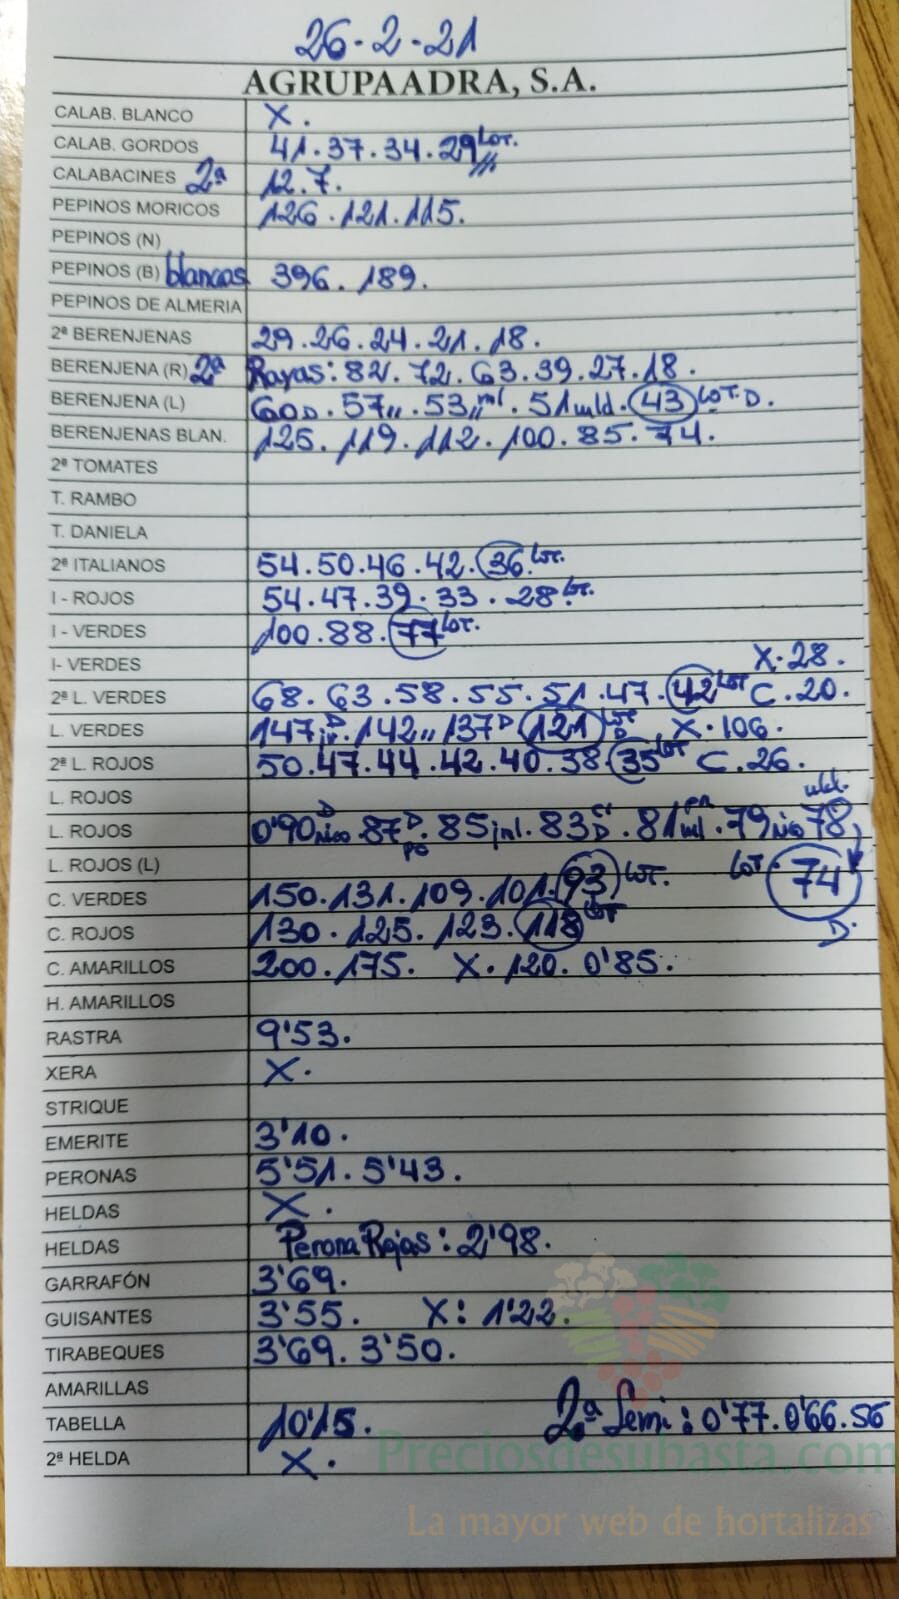 26-2-21
AGRUPAADRA, S.A.
CALAB. BLANCO X.
CALAB. GORDOS 41.37.34.29 Lot.
CALABACINES 2ª 12.7.
PEPINOS MORICOS 126.121.115.
PEPINOS (N)
PEPINOS (B) blancos 396.189.
PEPINOS DE ALMERIA
2ª BERENJENAS 29.26.24.21.18.
BERENJENA (R) 2ª Rayas: 82.72.63.39.27.18.
BERENJENA (L) 60D.57,,.53,, ml.51 mld.43 LOT.D.
BERENJENAS BLAN. 125.119.112.100.85.74.
2ª TOMATES
T. RAMBO
T. DANIELA
2ª ITALIANOS 54.50.46.42.36 Lot.
I - ROJOS 54.47.39.33.28 Lot.
I - VERDES 100.88.77 Lot.
I- VERDES X.28.
2ª L. VERDES 68.63.58.55.51.47.42 LOT C.20.
L. VERDES 147 D.142,, 137 D 121 Lot D X.106.
2ª L. ROJOS 50.47.44.42.40.38.35 Lot C.26.
L. ROJOS
L. ROJOS 0'90 D.87 D.85 ml.83 D.81 ml.79 78
L. ROJOS (L) LOT. 74 D.
C. VERDES 150.131.109.101.93 LOT.
C. ROJOS 130.125.123.118 LOT
C. AMARILLOS 200.175. X.120.0'85.
H. AMARILLOS
RASTRA 9'53.
XERA X.
STRIQUE
EMERITE 3'10.
PERONAS 5'51.5'43.
HELDAS X.
HELDAS Perona Rojas: 2'98.
GARRAFÓN 3'69.
GUISANTES 3'55. X: 1'22.
TIRABEQUES 3'69.3'50.
AMARILLAS
TABELLA 10'15. 2ª Semi: 0'77.0'66.56
2ª HELDA X.
Preciosdesubasta.com
La mayor web de hortalizas